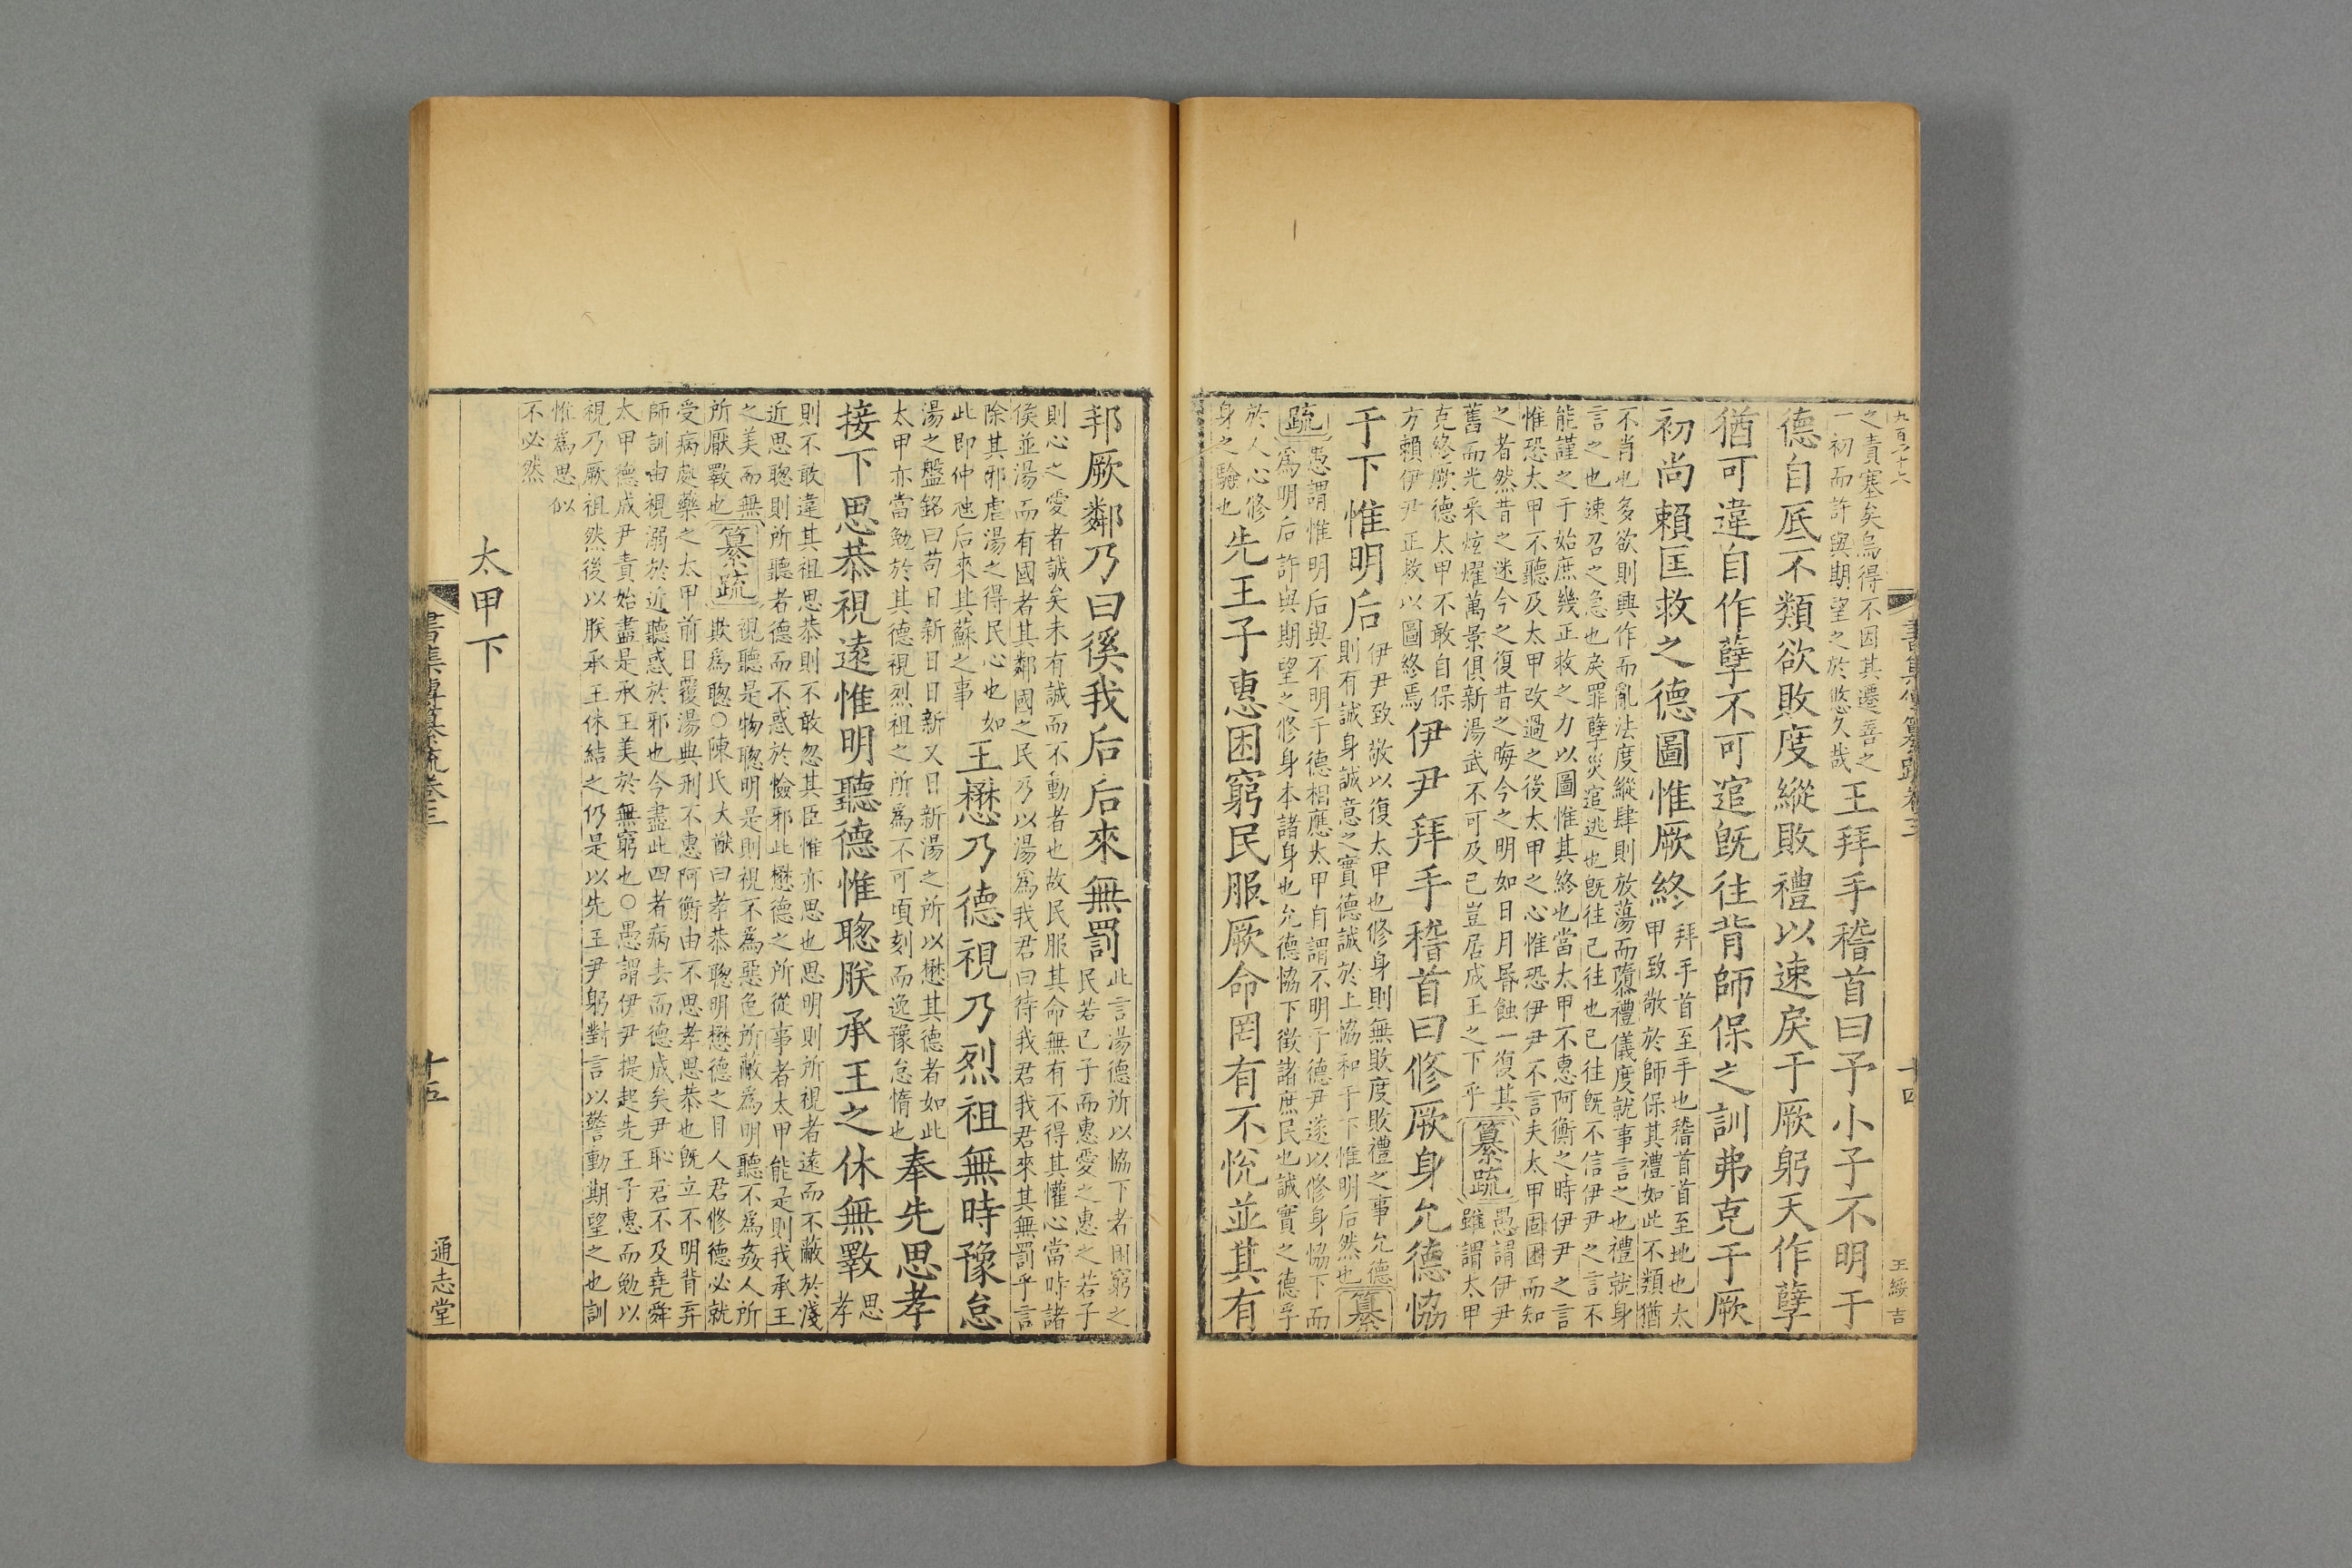 九百六十六
之責塞矣烏得不因其遷善之
一初而許與期望之於悠久哉
王拜手稽首曰予小子不明于
德自厎不類欲敗度縱敗禮以速戾于厥躬天作孽
猶可違自作孽不可逭旣往背師保之訓弗克于厥
初尚賴匡救之德圖惟厥終
拜手首至手也稽首首至地也太
甲致敬於師保其禮如此不類猶
不肖也多欲則興作而亂法度縱肆則放蕩而隳禮儀度就事言之也禮就身
言之也速召之急也戾罪孽災逭逃也旣往已往也已往旣不信伊尹之言不
能謹之于始庶幾正救之力以圖惟其終也當太甲不惠阿衡之時伊尹之言
惟恐太甲不聽及太甲改過之後太甲之心惟恐伊尹不言夫太甲固困而知
之者然昔之迷今之復昔之晦今之明如日月昏蝕一復其
舊而光采炫燿萬景俱新湯武不可及已豈居成王之下乎
纂疏
愚謂伊尹
雖謂太甲
克終厥德太甲不敢自保
方賴伊尹正救以圖終焉
伊尹拜手稽首曰修厥身允德協
于下惟明后
伊尹致敬以復太甲也修身則無敗度敗禮之事允德
則有誠身誠意之實德誠於上協和于下惟明后然也
纂
疏
愚謂惟明后與不明于德相應太甲自謂不明于德尹遂以修身協下而
爲明后許與期望之修身本諸身也允德協下徵諸庶民也誠實之德孚
於人心修
身之驗也
先王子惠困窮民服厥命罔有不悅並其有
書集傳纂疏卷三
十四
王綏吉
邦厥鄰乃曰徯我后后來無罰
此言湯德所以協下者困窮之
民若已子而惠愛之惠之若子
則心之愛者誠矣未有誠而不動者也故民服其命無有不得其懽心當時諸
侯並湯而有國者其鄰國之民乃以湯爲我君曰待我君我君來其無罰乎言
除其邪虐湯之得民心也如
此卽仲虺后來其蘇之事
王懋乃德視乃烈祖無時豫怠
湯之盤銘曰苟日新日日新又日新湯之所以懋其德者如此
太甲亦當勉於其德視烈祖之所爲不可頃刻而逸豫怠惰也
奉先思孝
接下思恭視遠惟明聽德惟聰朕承王之休無斁
思
孝
則不敢違其祖思恭則不敢忽其臣惟亦思也思明則所視者遠而不蔽於淺
近思聰則所聽者德而不惑於憸邪此懋德之所從事者太甲能是則我承王
之美而無
所厭斁也
纂疏
視聽是物聰明是則視不爲惡色所蔽爲明聽不爲姦人所
欺爲聰○陳氏大猷曰孝恭聰明懋德之目人君修德必就
受病處藥之太甲前日覆湯典刑不惠阿衡由不思孝思恭也旣立不明背弃
師訓由視溺於近聽惑於邪也今盡此四者病去而德成矣尹恥君不及堯舜
太甲德成尹責始盡是承王美於無窮也○愚謂伊尹提起先王子惠而勉以
視乃厥祖然後以朕承王休結之仍是以先王尹躬對言以警動期望之也訓
惟爲思似
不必然
太甲下
書集傳纂疏卷三
十五
通志堂